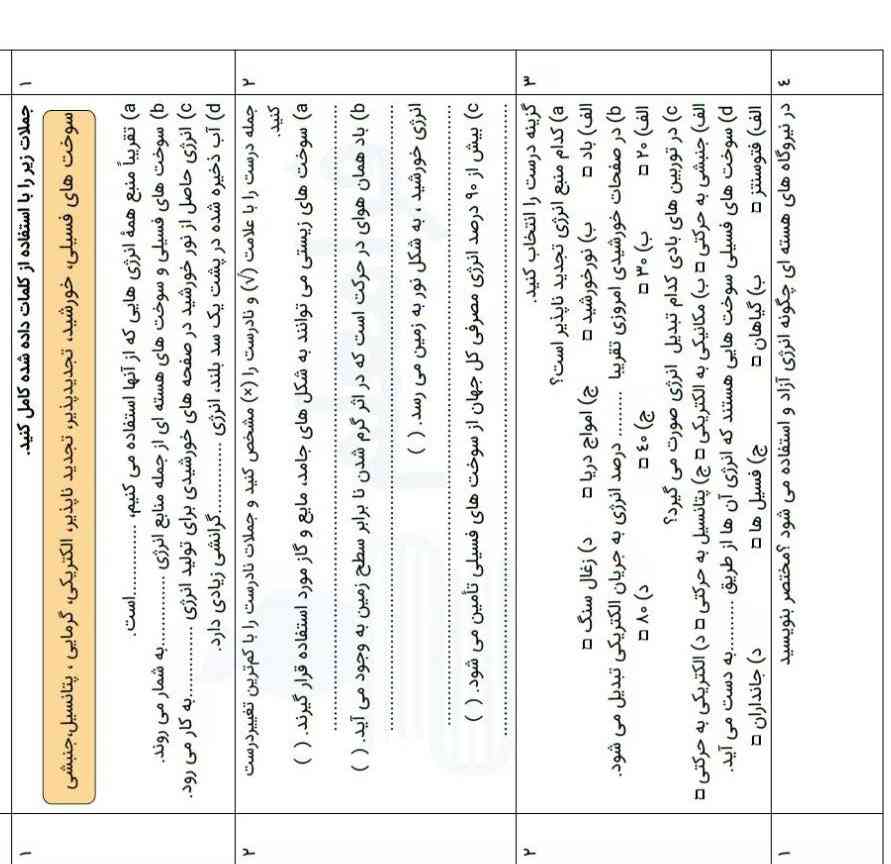 ۱
جملات زیر را با استفاده از کلمات داده شده کامل کنید.
سوخت های فسیلی، خورشید، تجدیدپذیر، تجدید ناپذیر، الکتریکی، گرمایی ، پتانسیل،جنبشی
a) تقریباً منبع همهٔ انرژی هایی که از آنها استفاده می کنیم، .............است.
b) سوخت های فسیلی و سوخت های هسته ای از جمله منابع انرژی .............به شمار می روند.
c) انرژی حاصل از نور خورشید در صفحه های خورشیدی برای تولید انرژی .............به کار می رود.
d) آب ذخیره شده در پشت یک سد بلند، انرژی .............گرانشی زیادی دارد.
۱
۲
جمله درست را با علامت (√) و نادرست را (×) مشخص کنید و جملات نادرست را با کم‌ترین تغییردرست
کنید.
a) سوخت های زیستی می توانند به شکل های جامد، مایع و گاز مورد استفاده قرار گیرند. ( )
b) باد همان هوای در حرکت است که در اثر گرم شدن نا برابر سطح زمین به وجود می آید. ( )
انرژی خورشید ، به شکل نور به زمین می رسد. ( )
c) بیش از ۹۰ درصد انرژی مصرفی کل جهان از سوخت های فسیلی تأمین می شود. ( )
۲
۳
گزینه درست را انتخاب کنید.
a) کدام منبع انرژی تجدید ناپذیر است؟
الف) باد □ ب) نورخورشید □ ج) امواج دریا □ د) زغال سنگ □
b) در صفحات خورشیدی امروزی تقریبا ......... درصد انرژی به جریان الکتریکی تبدیل می شود.
الف) ۲۰ □ ب) ۳۰ □ ج) ٤٠ □ د) ۸۰ □
c) در توربین های بادی کدام تبدیل انرژی صورت می گیرد؟
الف) جنبشی به حرکتی □ ب) مکانیکی به الکتریکی □ ج) پتانسیل به حرکتی □ د) الکتریکی به حرکتی □
d) سوخت های فسیلی سوخت هایی هستند که انرژی آن ها از طریق .........به دست می آید.
الف) فتوسنتز □ ب) گیاهان □ ج) فسیل ها □ د) جانداران □
۲
٤
در نیروگاه های هسته ای چگونه انرژی آزاد و استفاده می شود؟مختصر بنویسید
۱